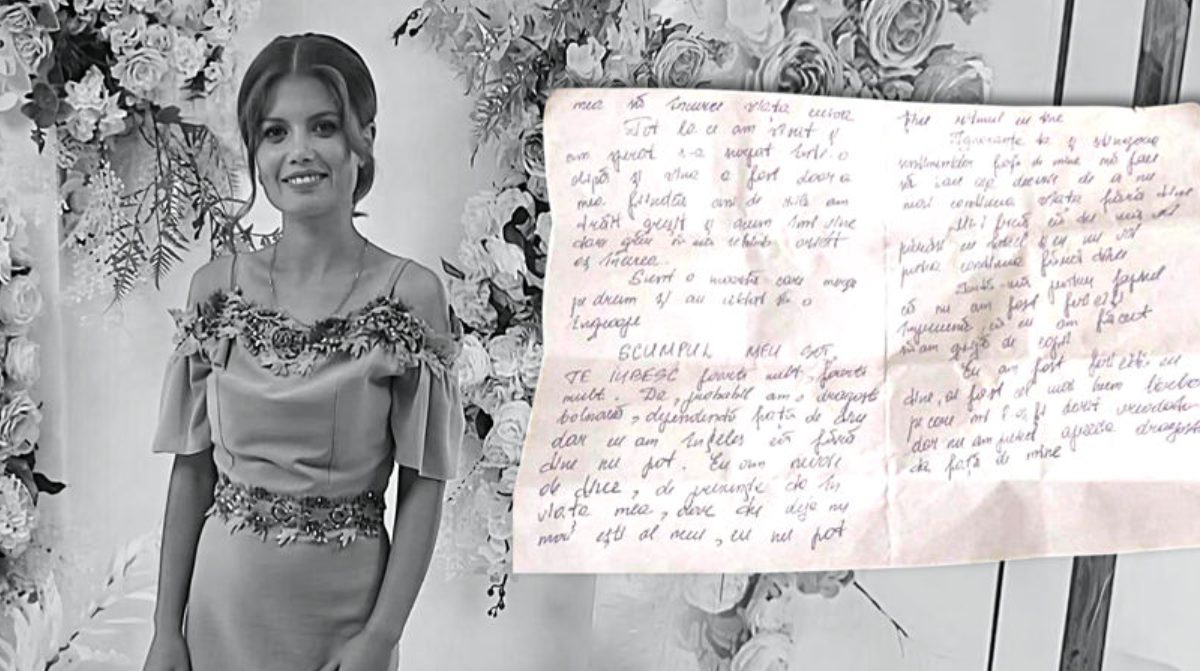 mea să încurce viața cuiva
Tot la ce am visat și
am sperat s-a năruit într-o
clipă și vina a fost doar a
mea. fiindcă ani de zile am
trăit greșit și acum îmi vine
aș încerca.
Sunt o moartă care merge
pe drum și au
îngroape
SCUMPUL MEU SOȚ,
TE IUBESC foarte mult, foarte
mult. Da, probabil am o dragoste
bolnavă, dependentă față de tine
dar eu am înțeles că fără
tine nu pot. Eu am nevoie
de tine, de prezența ta în
viața mea, doar că deja nu
mai ești al meu, eu nu pot
ține ritmul cu tine
Ignoranța ta și stingerea
sentimentelor față de mine mă face
să iau așa decizie de a nu
mai continua viața fără tine
Mi-i frică că de mic voi
pierde cu totul și eu nu voi
putea continua fără tine
Iartă-mă pentru faptul
că nu am fost
împreună, că eu am făcut
n-am grijă de copii
Eu am fost fericită cu
tine, ai fost cel mai bun bărbat
pe care mi l-aș fi dorit vreodată
dar nu am putut aprecia dragostea
ta față de mine